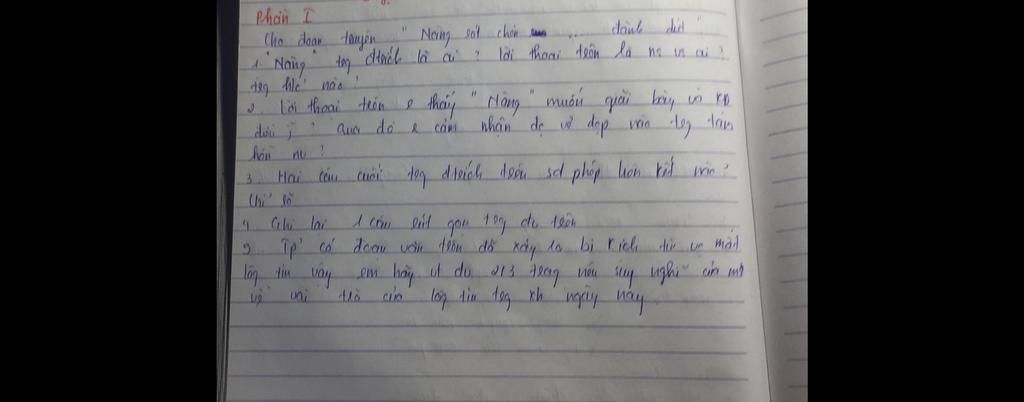 Phần I
Cho đoạn truyện " Nàng sót chén ... đành dứt "
1. "Nàng" tg đtrích là ai ? lời thoại trên là ns vs ai ?
tg h/c nào ?
2. Lời thoại trên e thấy "Nàng" muốn giãi bày và KĐ
đìu j ? Qua đó e cảm nhận dc vẻ đẹp nào tg tâm
hồn nv ?
3. Hai câu cuối tg đtrích trên sd phép liên kết nào ?
Chỉ rõ
4. Ghi lại 1 câu rút gọn tg đv trên
5. Tp' có đoạn văn trên đã xảy ra bi kịch từ vc mất
lòg tin vậy em hãy vt đv 2/3 trang nêu suy nghĩ của mk
về vai trò của lòg tin tg xh ngày nay